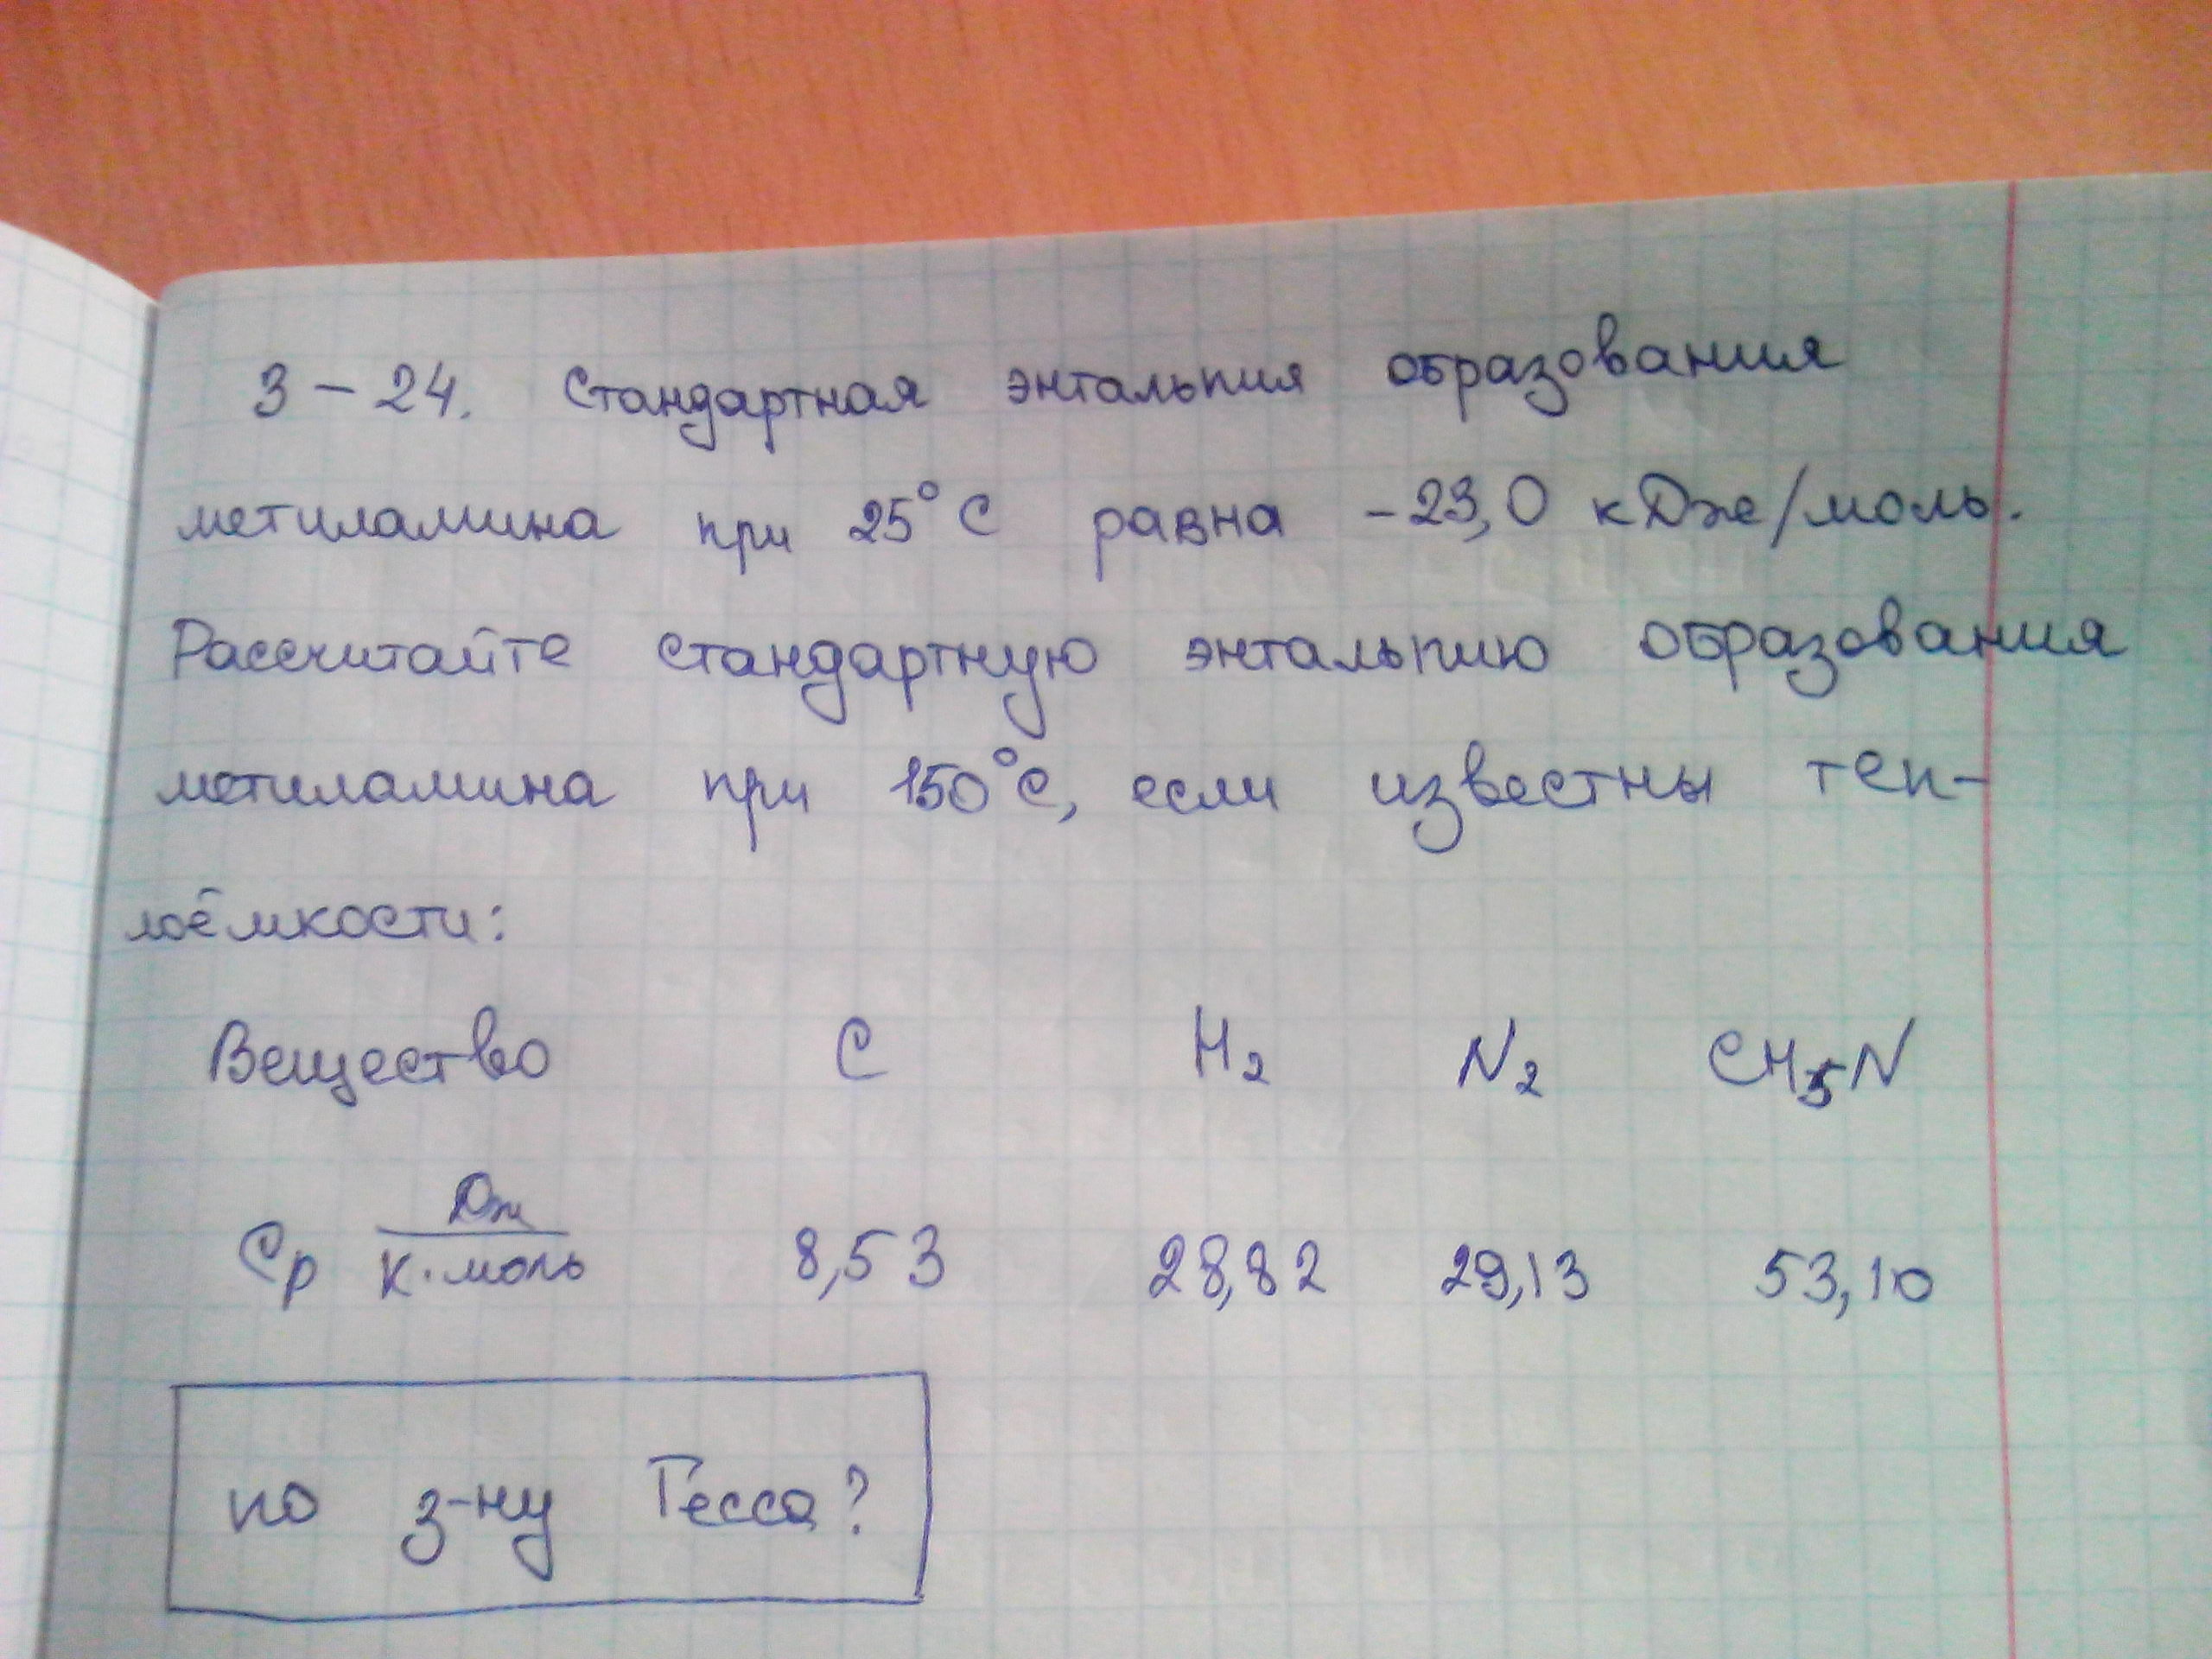 3-24. Стандартная энтальпия образования
метиламина при 25°С равна -23,0 кДж/моль.
Рассчитайте стандартную энтальпию образования
метиламина при 150°С, если известны теп-
лоёмкости:
Вещество C H2 N2 CH5N
Cp Дж/К·моль 8,53 28,82 29,13 53,10
по з-ну Гесса?